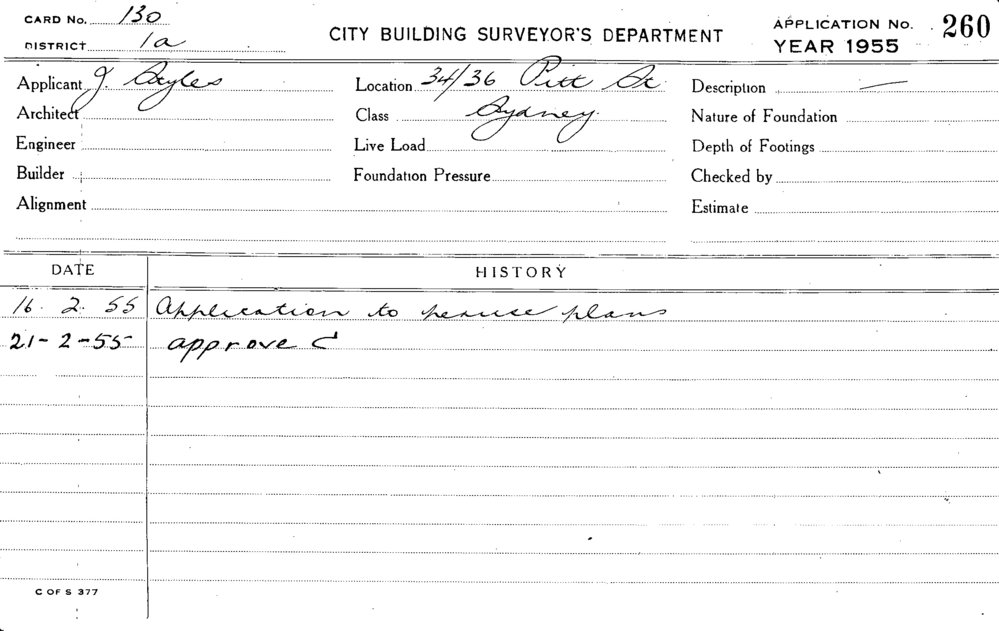 CARD No. 130
DISTRICT 1a
CITY BUILDING SURVEYOR'S DEPARTMENT
APPLICATION No. 260
YEAR 1955
Applicant J. Sayles
Location 34/36 Pitt St
Description —
Architect
Class Sydney.
Nature of Foundation
Engineer
Live Load
Depth of Footings
Builder
Foundation Pressure
Checked by
Alignment
Estimate
DATE HISTORY
16. 2. 55 Application to peruse plans
21-2-55 approved
C OF S 377